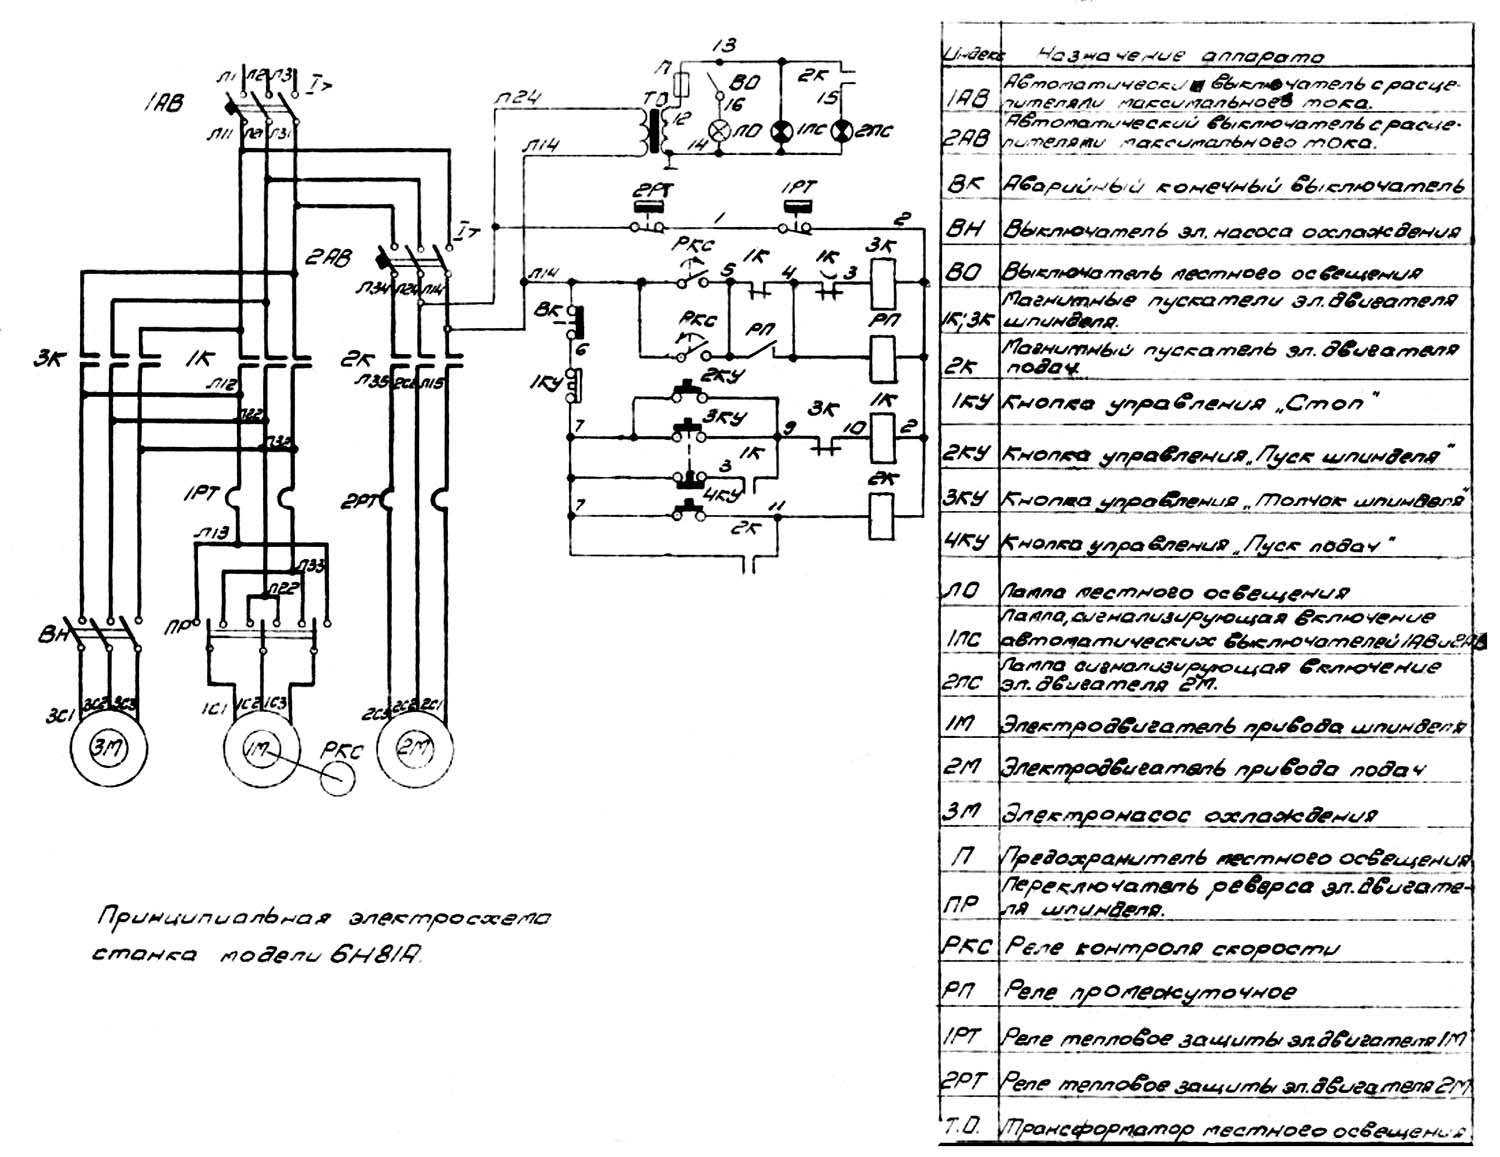 Л1 Л2 Л3 I>
1АВ
Л11 Л21 Л31
Л24
Л14
П
ТО
12
13
ВО
16
ЛО
14
1ЛС
2К
15
2ЛС
2РТ
1
1РТ
2
I>
2АВ
Л34 Л24 Л14
Л14
РКС
5
1К
4
1К
3
3К
ВК
6
РКС
РП
РП
3К
1К
2К
Л12
Л35 2С2 Л15
1КУ
2КУ
7
3КУ
9
3К
10
1К
2
Л22
Л32
1К
3
4КУ
1РТ
2РТ
7
11
2К
2К
Л13
Л33
Л22
ВН
ПР
3С1 3С2 3С3
1С1 1С2 1С3
2С3 2С2 2С1
3М
1М
РКС
2М
Принципиальная электросхема
станка модели 6Н81А.
Индекс Назначение аппарата
1АВ Автоматический выключатель с расце-
пителями максимального тока.
2АВ Автоматический выключатель с расце-
пителями максимального тока.
ВК Аварийный конечный выключатель
ВН Выключатель эл. насоса охлаждения
ВО Выключатель местного освещения
1К; 3К Магнитные пускатели эл. двигателя
шпинделя.
2К Магнитный пускатель эл. двигателя
подач.
1КУ Кнопка управления „Стоп"
2КУ Кнопка управления „Пуск шпинделя"
3КУ Кнопка управления „Толчок шпинделя"
4КУ Кнопка управления „Пуск подач"
ЛО Лампа местного освещения
1ЛС Лампа, сигнализирующая включение
автоматических выключателей 1АВ и 2АВ
2ЛС Лампа сигнализирующая включение
эл. двигателя 2М.
1М Электродвигатель привода шпинделя
2М Электродвигатель привода подач
3М Электронасос охлаждения
П Предохранитель местного освещения
ПР Переключатель реверса эл. двигате-
ля шпинделя.
РКС Реле контроля скорости
РП Реле промежуточное
1РТ Реле тепловое защиты эл. двигателя 1М
2РТ Реле тепловое защиты эл. двигателя 2М
Т.О. Трансформатор местного освещения